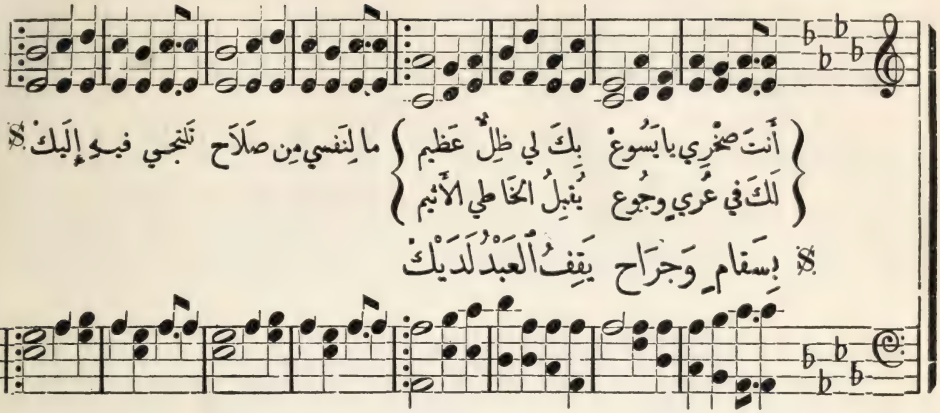 أَنتَ صَخْرِي يا يَسُوعْ بِكَ لي ظِلٌّ عَظيم
لَكَ في عُري وجُوع يُقبِلُ الخَاطي الأَثيم
ما لِنَفسي مِن صَلَاح تَلتجي فيهِ إِلَيكْ
بِسَقامٍ وَجرَاح يَقِفُ العَبْدُ لَدَيْكْ